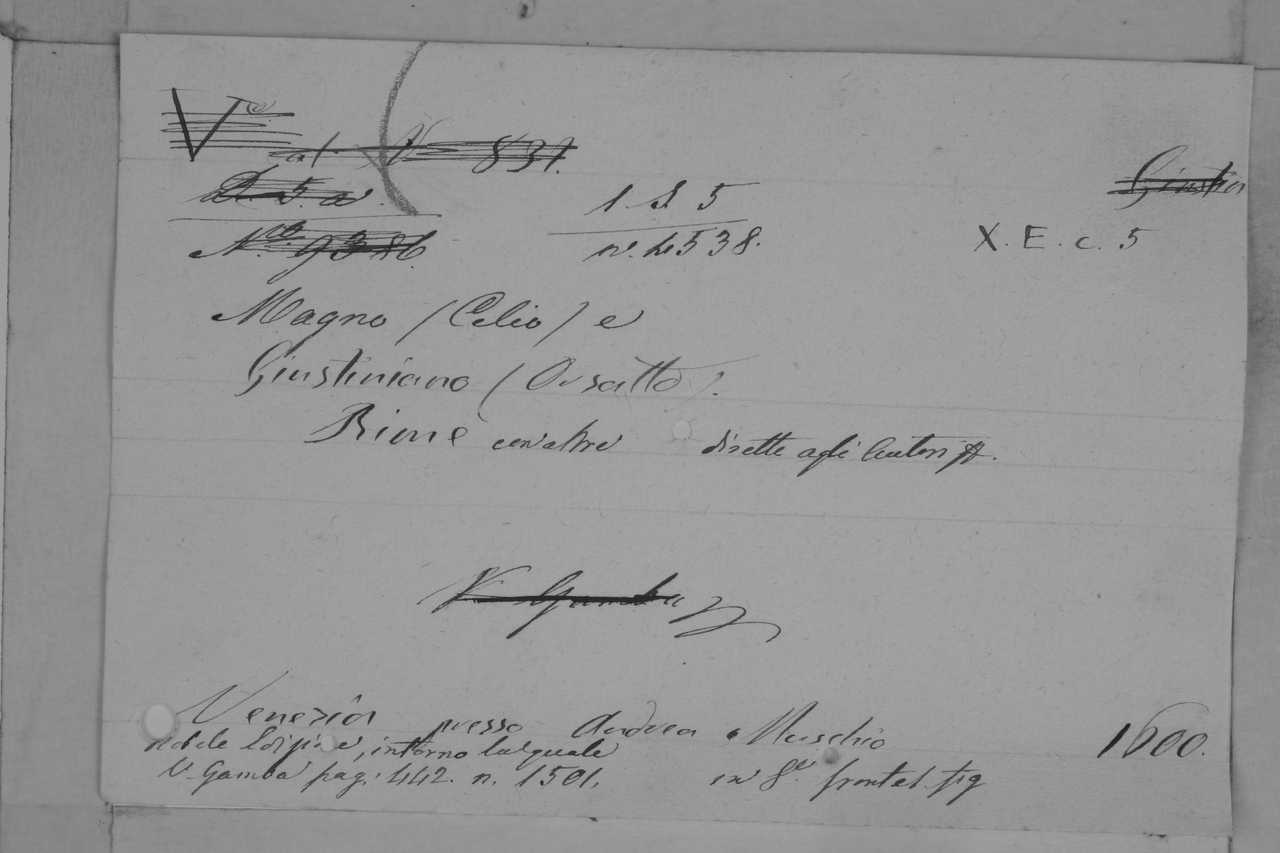 V
al N 831.
D. 5. a
N.º 9386
1 S 5
n.º 4538.
Giustin
X. E. c. 5
Magno (Celio) e
Giustiniano (Orsatto).
Rime con altre dirette agli Autori
V. Gamba
Venezia presso Andrea Muschio 1600.
nobile Edizione, intorno la quale
V. Gamba pag. 442. n. 1501. in 8º frontesp. fig